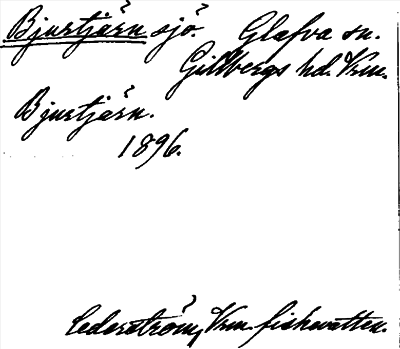 Bjurtjärn sjö. Glafva sn.
Gillbergs hd. Vrm.
Bjurtjärn.
1896.
Cederström, Vrm. fiskevatten.